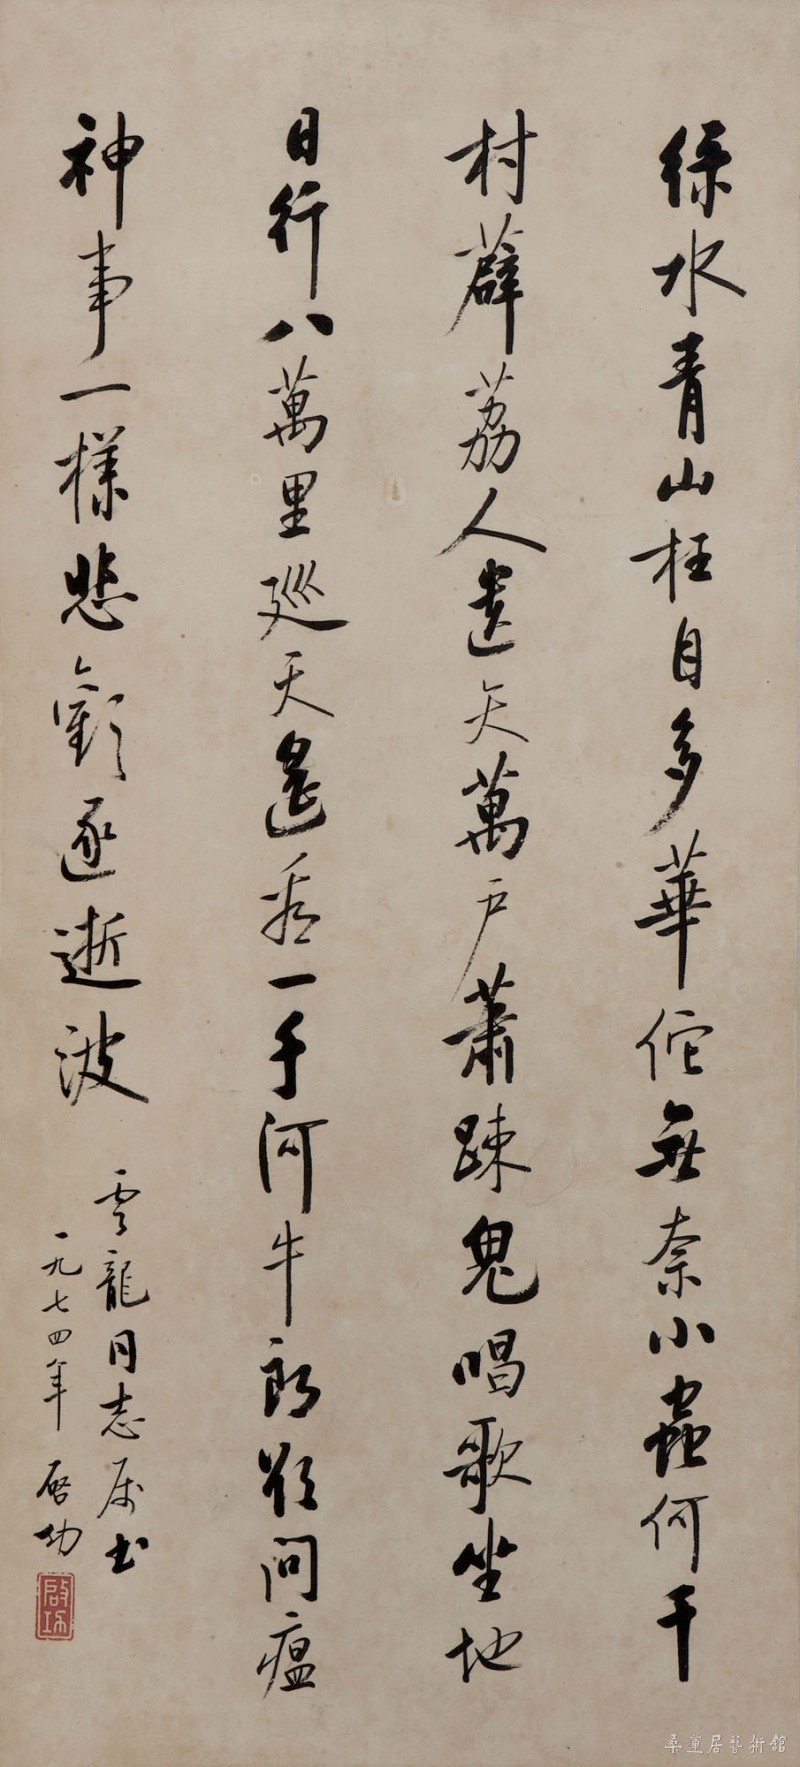 綠水青山枉自多華佗無奈小蟲何千
村薜荔人遺矢萬户蕭疎鬼唱歌坐地
日行八萬里廵天遙看一千河牛郎欲問瘟
神事一樣悲歡逐逝波
雲龍同志属書
一九七四年 啓功
啟功
桑蓮居藝術館